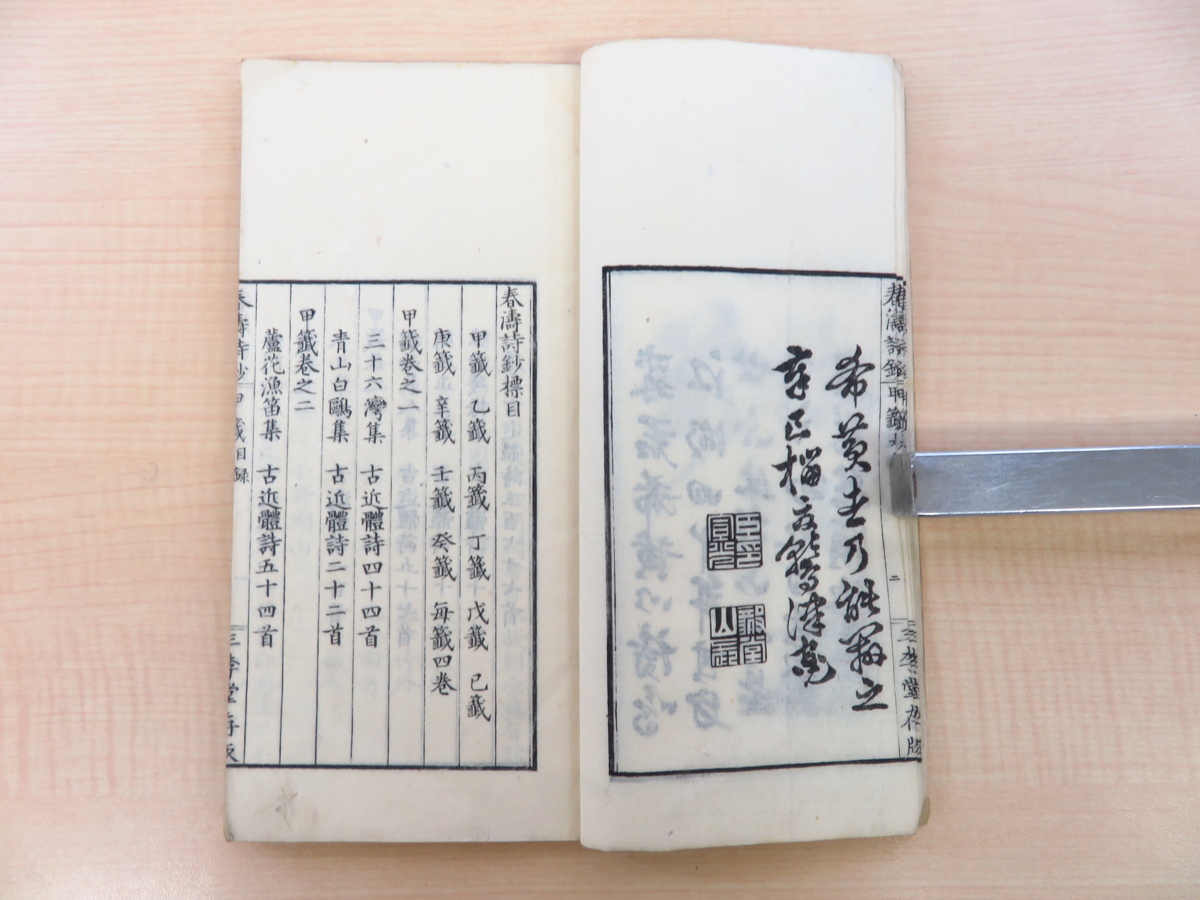 希黄圭乃能辨之
辛巳橊
春濤詩鈔
甲籤
三李堂存版
春濤詩鈔標目
甲籤 乙籤 丙籤 丁籤 戊籤 己籤
庚籤 辛籤 壬籤 癸籤 每籤四卷
甲籤卷之一
三十六灣集 古近體詩四十四首
青山白鷗集 古近體詩二十二首
甲籤卷之二
蘆花漁笛集 古近體詩五十四首
春濤詩鈔 甲籤目録
三李堂存版